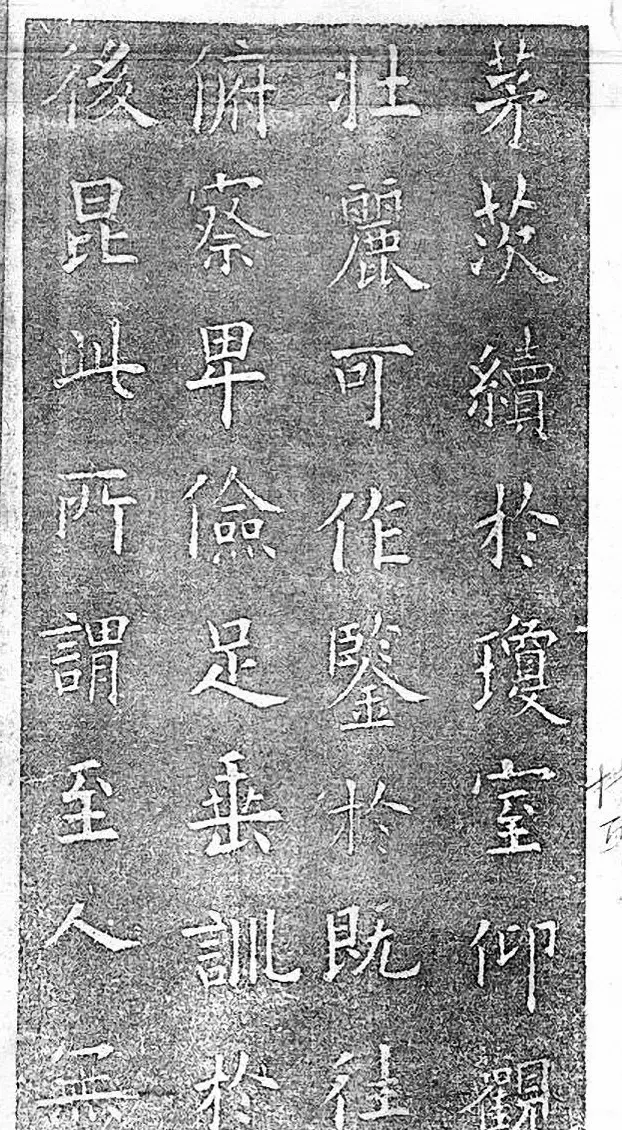 茅茨續於瓊室仰觀
壯麗可作鑒於既往
俯察卑儉足垂訓於
後昆此所謂至人無